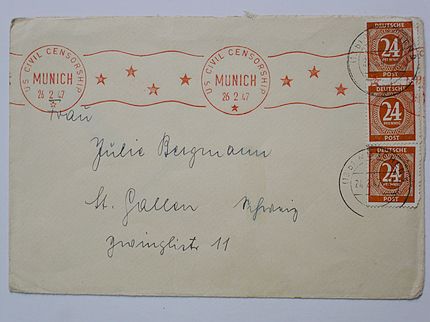 US CIVIL CENSORSHIP
MUNICH
26 2 47
US CIVIL CENSORSHIP
MUNICH
26 2 47
DEUTSCHE
24
PFENNIG
POST
DEUTSCHE
24
PFENNIG
POST
DEUTSCHE
24
PFENNIG
POST
Frau
Julie Bergmann
St. Gallen Schweiz
Zwinglistr 11